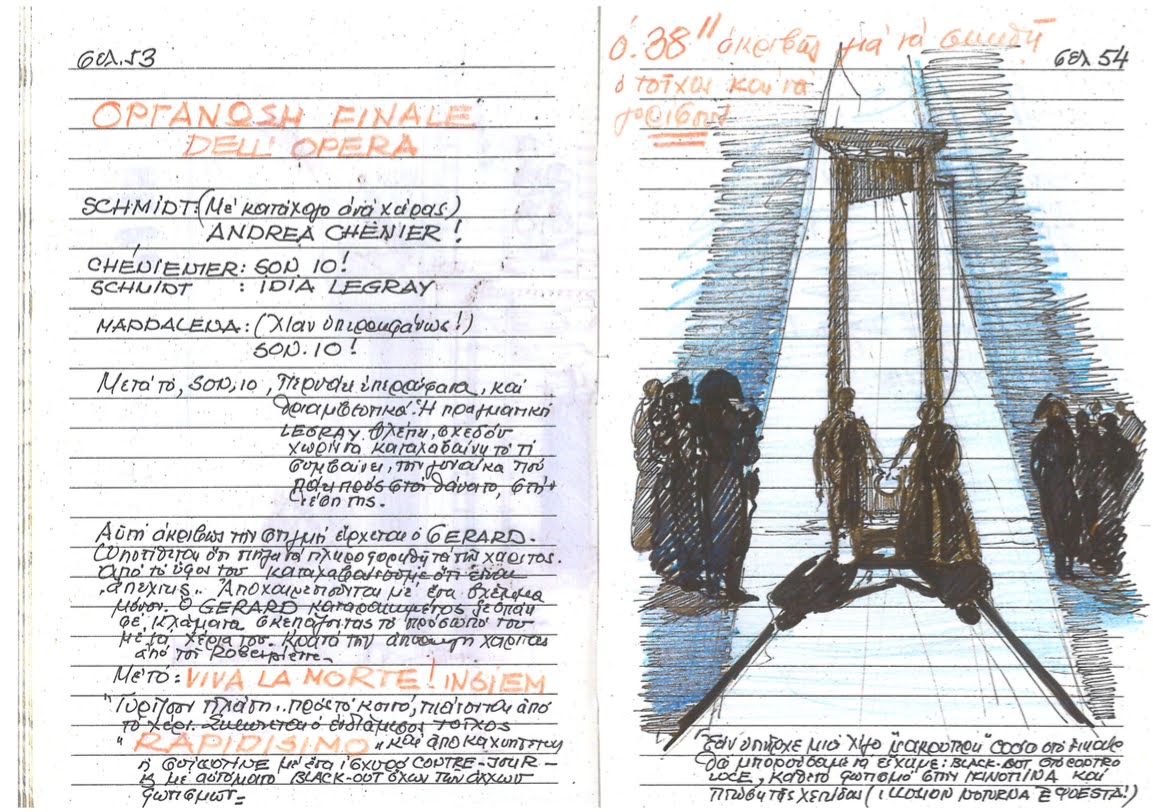 σελ. 53
ΟΡΓΑΝΩΣΗ FINALE
DELL' OPERA
SCHMIDT: (Με κατάλογο ανά χείρας)
ANDREA CHÉNIER!
CHÉNIENIER: SON. 10!
SCHMIDT : IDIA LEGRAY
MADDALENA: (Λίαν υπερηφάνως!)
SON. 10!
Μετά το, SON, 10, περνάει υπερήφανα, και
θριαμβευτικά. Η πραγματική
LEGRAY βλέπει, σχεδόν
χωρίς να καταλαβαίνη το τι
συμβαίνει, την γυναίκα που
πάει προς στον θάνατο, στην
θέση της.
Αυτή ακριβώς την στιγμή έρχεται ο GERARD.
(Υποτίθεται ότι πήγε να πληροφορηθή τα της χάριτος.
Από το ύφος του καταλαβαίνουμε ότι είναι
"ατυχής". Αποχαιρετιούνται με ένα βλέμμα
μόνον. Ο GERARD καταρακωμένος ξεσπάη
σε κλάματα σκεπάζοντας το πρόσωπό του
με τα χέρια του. Κρατά την απόφαση χάριτος
από τον Robespierre.
Με τό: VIVA LA MORTE! INSIEM
Γυρίζουν πλάτη.. προς το κοινό, πιάνονται από
το χέρι. Σηκώνεται ο ενδιάμεσος τοίχος
" RAPIDISIMO " και αποκαλύπτεται
η GUIOTINE με ένα ισχυρό CONTRE-JOUR –
& με αυτόματο BLACK-OUT όλων των άλλων
φωτισμών =
ό. 38" ακριβώς για να σηκωθή
ο τοίχος και να
γυρίσουν
σελ 54
Εάν υπήρχε μια λίγο "μακρυτερη" CODA στο finale
θα μπορούσαμε να είχαμε: BLACK-OUT στο CONTRO
LUCE, κάθετο φωτισμό στην ΓΚΙΝΟΤΙΝΑ και
πτώση της λεπίδας (ILLUSION NOTURNA E QUESTA!)